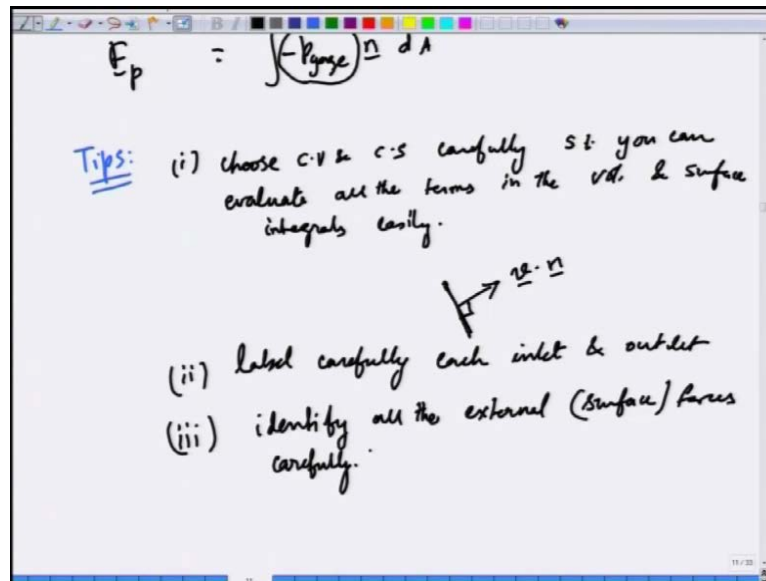 F_p = ∫(-P_gage) n dA
Tips: (i) choose C.V & C.S carefully s.t. you can
evaluate all the terms in the vol. & surface
integrals easily.
v · n
(ii) label carefully each inlet & outlet
(iii) identify all the external (surface) forces
carefully.
11 / 33